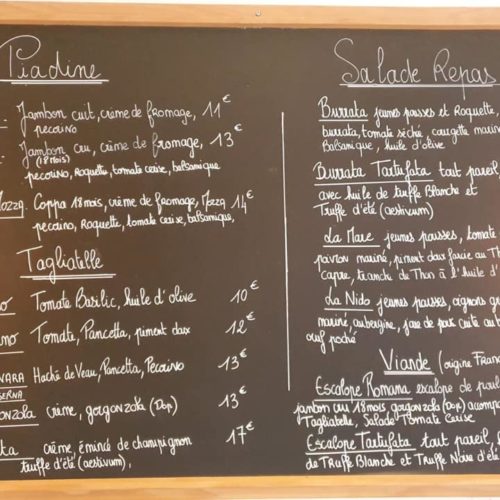 Piadine
Jambon cuit, crème de fromage, 11€
pecorino
Jambon cru, crème de fromage, 13€
(18 mois)
pecorino, Roquette, tomate cerise, balsamique
Mozza. Coppa 18 mois, crème de fromage, Mozza 14€
pecorino, Roquette, tomate cerise, balsamique,
Tagliatelle
Tomate Basilic, huile d'olive 10€
Tomate, Pancetta, piment doux 12€
Haché de Veau, Pancetta, Pecorino 13€
crème, gorgonzola (Dop) 13€
crème, émincé de champignon 17€
truffe d'été (aestivum),
Salade Repas
Burrata jeunes pousses et Roquette,
burrata, tomate séchée, courgette
Balsamique, huile d'olive
Burrata Tartufata tout pareil,
avec huile de truffe Blanche et
Truffe d'été (aestivum)
La Mare jeunes pousses, tomate
poivron mariné, piment doux farcie au
capre, tranche de Thon à l'huile
La Nido jeunes pousses, oignons
mariné, aubergine, joue de porc cuite
œuf poché
Viande (origine
Escalope Romana escalope de
jambon cru 18 mois gorgonzola (Dop)
Tagliatelle, Salade Tomate Cerise
Escalope Tartufata tout pareil,
de Truffe Blanche et Truffe Noire d'été